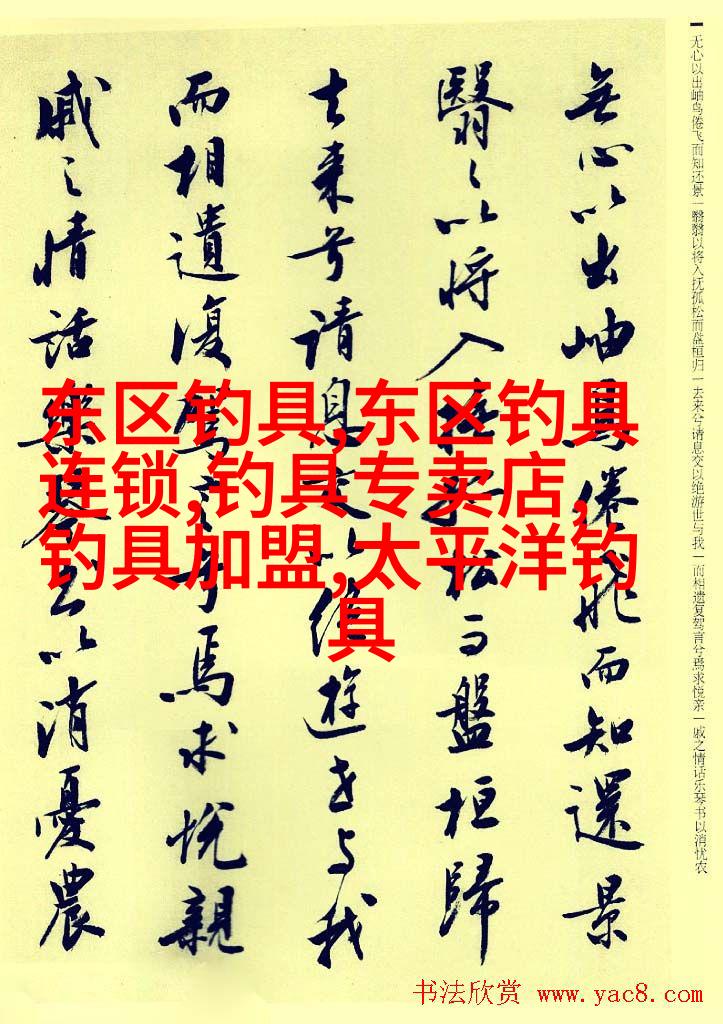 无心以出岫鸟倦飞而知还景一翳翳以将入抚孤松而盘桓归一去来兮请息交以绝游世与我一而相遗复驾言兮焉求悦亲一戚之情话乐琴书以消忧农
無心以出岫鳥倦飛而知還景
翳々以將入撫孤松而盤桓歸
去来兮請息交以絶遊世与我
而相遺復駕言兮焉求悅親
戚之情話樂琴書以消憂農
东区钓具,东区钓具
连锁,钓具专卖店,
钓具加盟,太平洋钓
具
书法欣赏 www.yac8.com